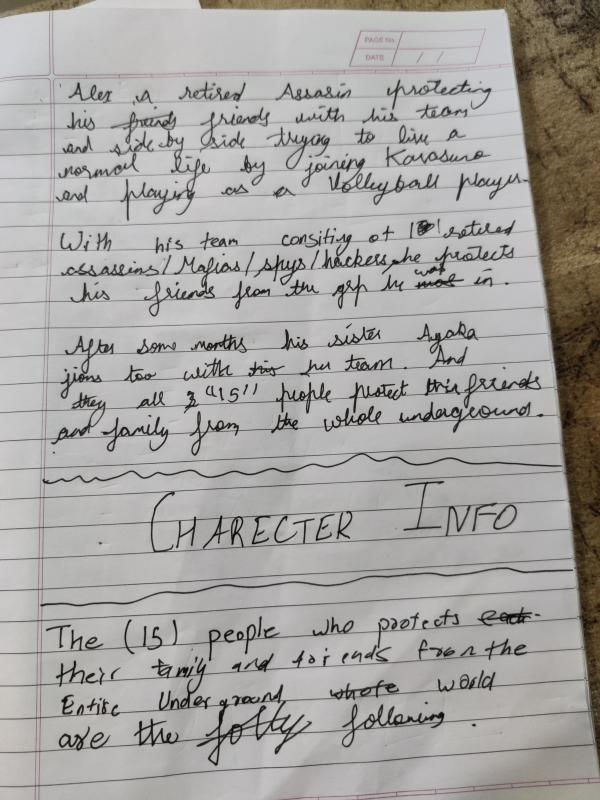 PAGE No.
DATE / /
Alex a retired Assasin protecting
his friends friends with his team
and side by side trying to live a
normal life by joining Karasuno
and playing as a Volleyball player.
With his team consiting of retired
assassins/Mafias/spys/hackers, he protects
his friends from the grp he was in.
After some months his sister Ayaka
jions too with his her team. And
they all "15" people protect friends
and family from the whole underground.
CHARECTER INFO
The (15) people who protects each
their family and friends from the
Entire Underground whole world
are the folly following.